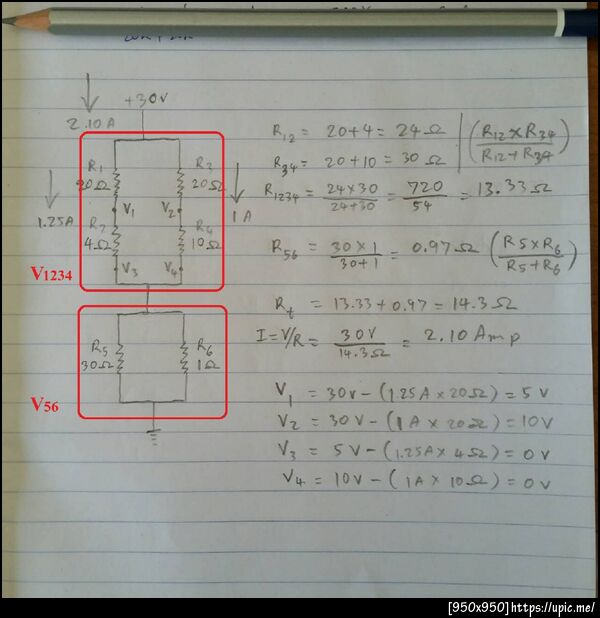 2.10A
+30V
R1
20Ω
R3
20Ω
1.25A
V1
V2
1A
R2
4Ω
R4
10Ω
V3
V4
V1234
R5
30Ω
R6
1Ω
V56
R12 = 20+4 = 24Ω | (R12×R34 / R12+R34)
R34 = 20+10 = 30Ω
R1234 = 24×30 / 24+30 = 720 / 54 = 13.33Ω
R56 = 30×1 / 30+1 = 0.97Ω (R5×R6 / R5+R6)
Rt = 13.33+0.97 = 14.3Ω
I=V/R = 30V / 14.3Ω = 2.10 Amp
V1 = 30V-(1.25A×20Ω)=5V
V2 = 30V-(1A×20Ω)=10V
V3 = 5V-(1.25A×4Ω)=0V
V4 = 10V-(1A×10Ω)=0V
[950x950] https://upic.me/